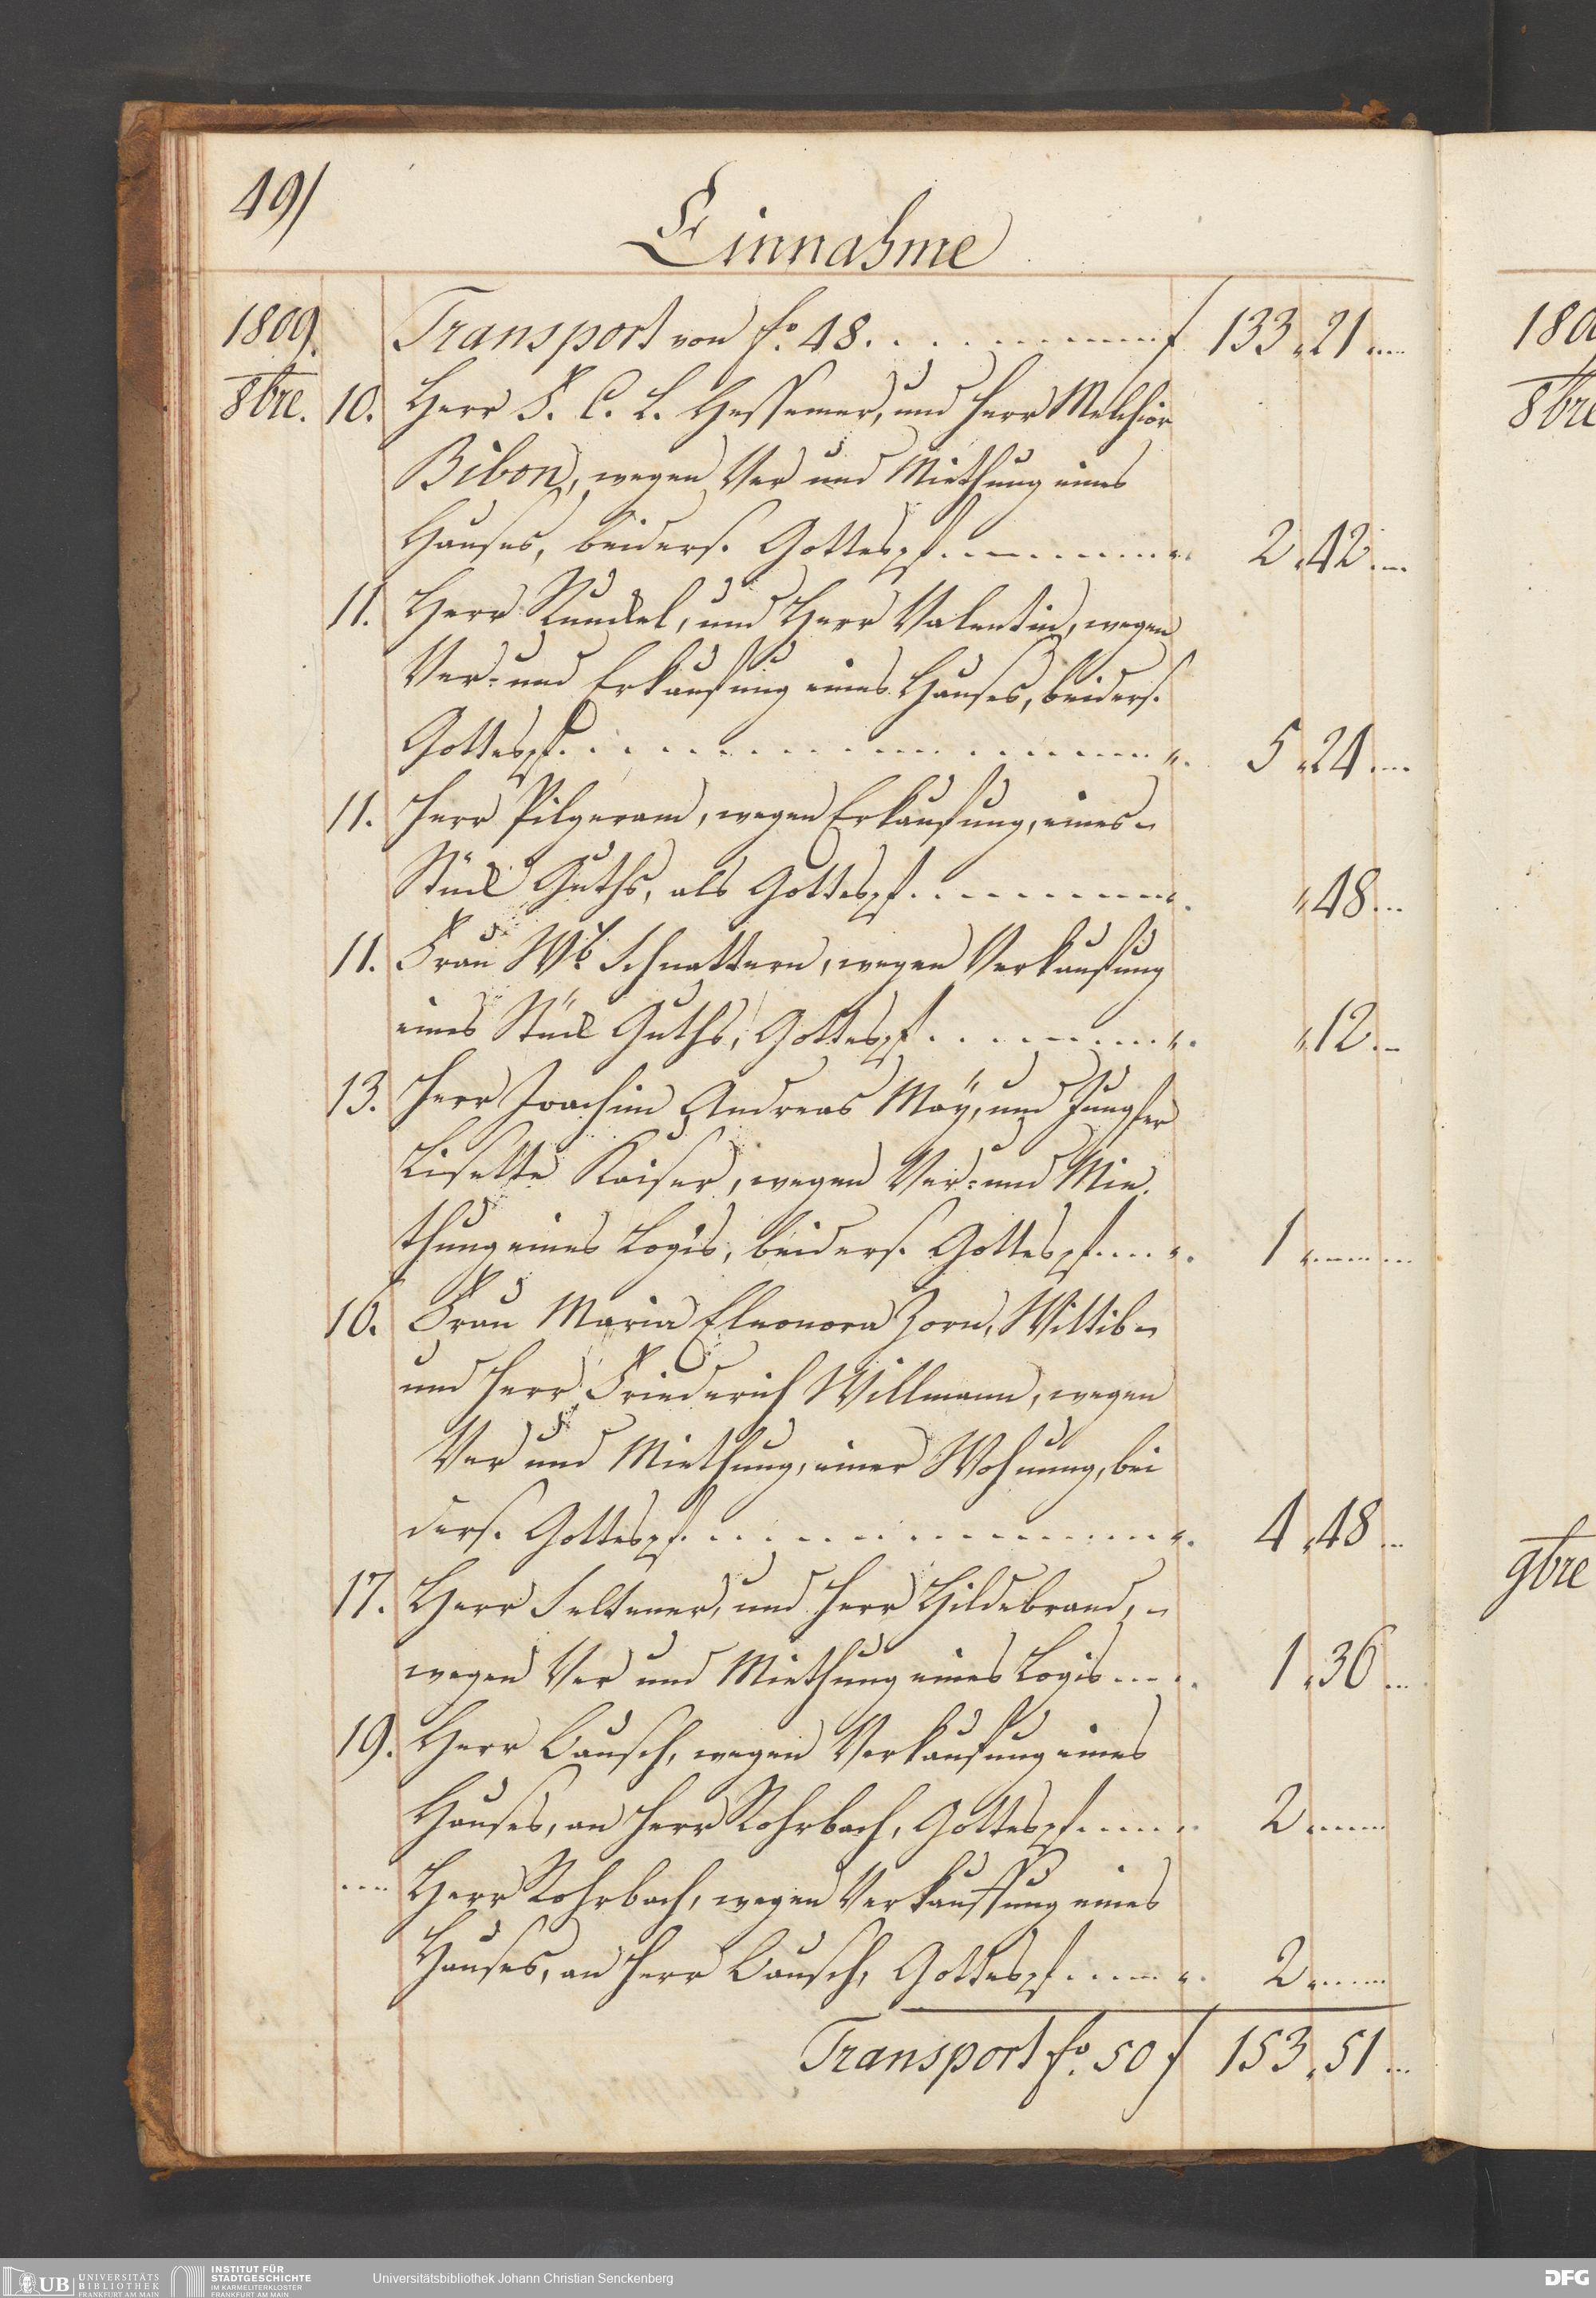 49/
Einnahme
1809. Transport von fo. 48. . . . . . . . . . f 133 „ 21 „ ...
8bre. 10. Herr F. C. L. Hessemer, und Herr Melchior
Bibon, wegen Ver und Miethung eines
Hauses, beiders. Gottespf. . . . . . . . . „ 2 „ 42 ...
11. Herr Kunckel, und Herr Valentin, wegen
Ver- und Erkaufung eines Hauses, beiders.
Gottespf. . . . . . . . . . . . . . . „ 5 „ 24 ...
11. Herr Pilgeram, wegen Erkaufung, eines
Stück Guths, als Gottespf. . . . . . . . „ „ 48 ...
11. Frau Wb. Schnattern, wegen Verkaufung
eines Stück Guths, Gottespf. . . . . . . „ „ 12 ...
13. Herr Joachim Andreas Maÿ, und Jungfer
Lisette Kaiser, wegen Ver- und Mie-
thung eines Logis, beiders. Gottespf. . . . „ 1 „ ...
16. Frau Maria Eleonora Zorn, Wittib
und Herr Friederich Willmann, wegen
Ver und Miethung, einer Wohnung, bei
ders. Gottespf. . . . . . . . . . . . „ 4 „ 48 ...
17. Herr Feltener, und Herr Hildebrand,
wegen Ver und Miethung eines Logis . . . . 1 „ 36 ...
19. Herr Bausch, wegen Verkaufung eines
Hauses, an Herr Rohrbach, Gottespf. . . . . „ 2 „ ...
.... Herr Rohrbach, wegen Verkauffung eines
Hauses, an Herr Bausch, Gottespf. . . . . „ 2 „ ...
Transport fo. 50 f 153 „ 51 ...
180
8bre
9bre
UB UNIVERSITÄTS
BIBLIOTHEK
FRANKFURT AM MAIN
INSTITUT FÜR
STADTGESCHICHTE
IM KARMELITERKLOSTER
FRANKFURT AM MAIN
Universitätsbibliothek Johann Christian Senckenberg
DFG